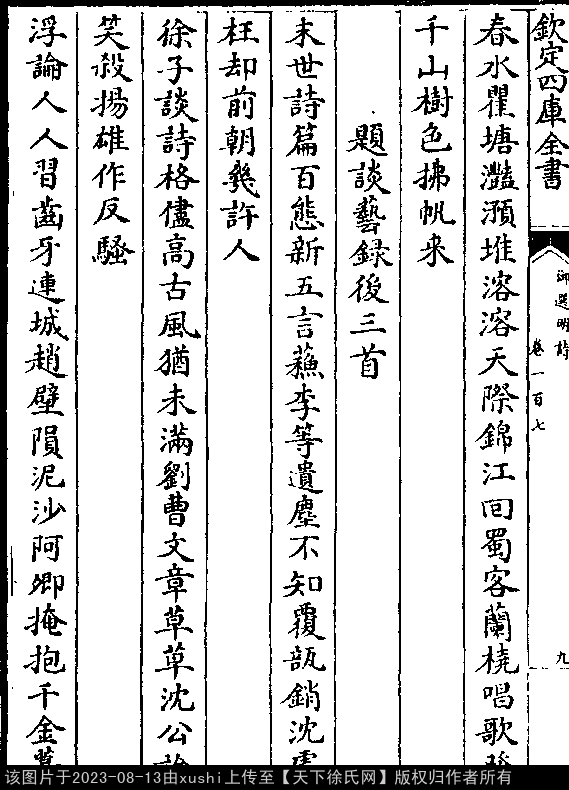 欽定四庫全書
御選明詩
卷一百七
九
春水瞿塘灩澦堆溶溶天際錦江回蜀客蘭橈唱歌
千山樹色拂帆来
題談藝録後三首
末世詩篇百態新五言蘇李等遺塵不知覆瓿銷沈
枉却前朝幾許人
徐子談詩格儘高古風猶未滿劉曹文章草草沈公
笑殺揚雄作反騷
浮論人人習齒牙連城趙壁隕泥沙阿卿掩抱千金
该图片于2023-08-13由xushi上传至【天下徐氏网】版权归作者所有